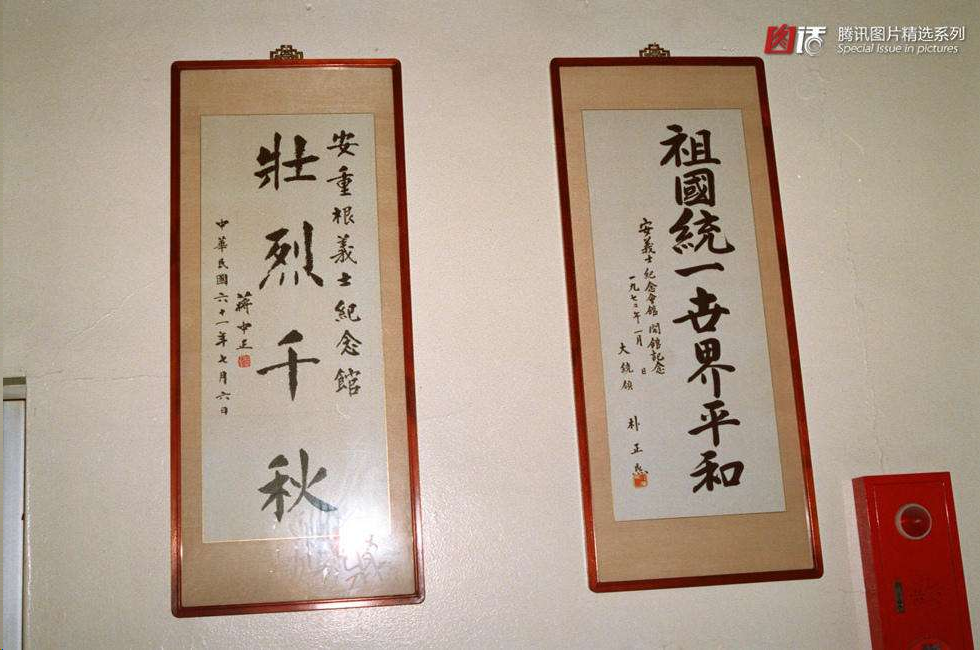 图话
腾讯图片精选系列
Special Issue in pictures
安重根義士紀念館
壯烈千秋
蔣中正
中華民國六十一年七月六日
祖國統一世界平和
安義士紀念會館開館記念
一九七二年一月 日
大統領 朴正熙